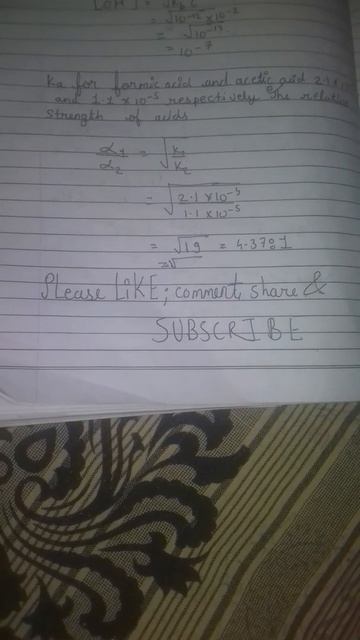 [OH⁻] = √KbC
= √10⁻¹² × 10⁻²
= √10⁻¹⁴
= 10⁻⁷
Ka for formic acid and acetic acid 2.1 × 10
and 1.1 × 10⁻⁵ respectively The relative
strength of acids
α1/α2 = √K1/K2
= √2.1 × 10⁻⁵/1.1 × 10⁻⁵
= √19 = 4.37:1
=√
Please LIKE; comment, share &
SUBSCRIBE